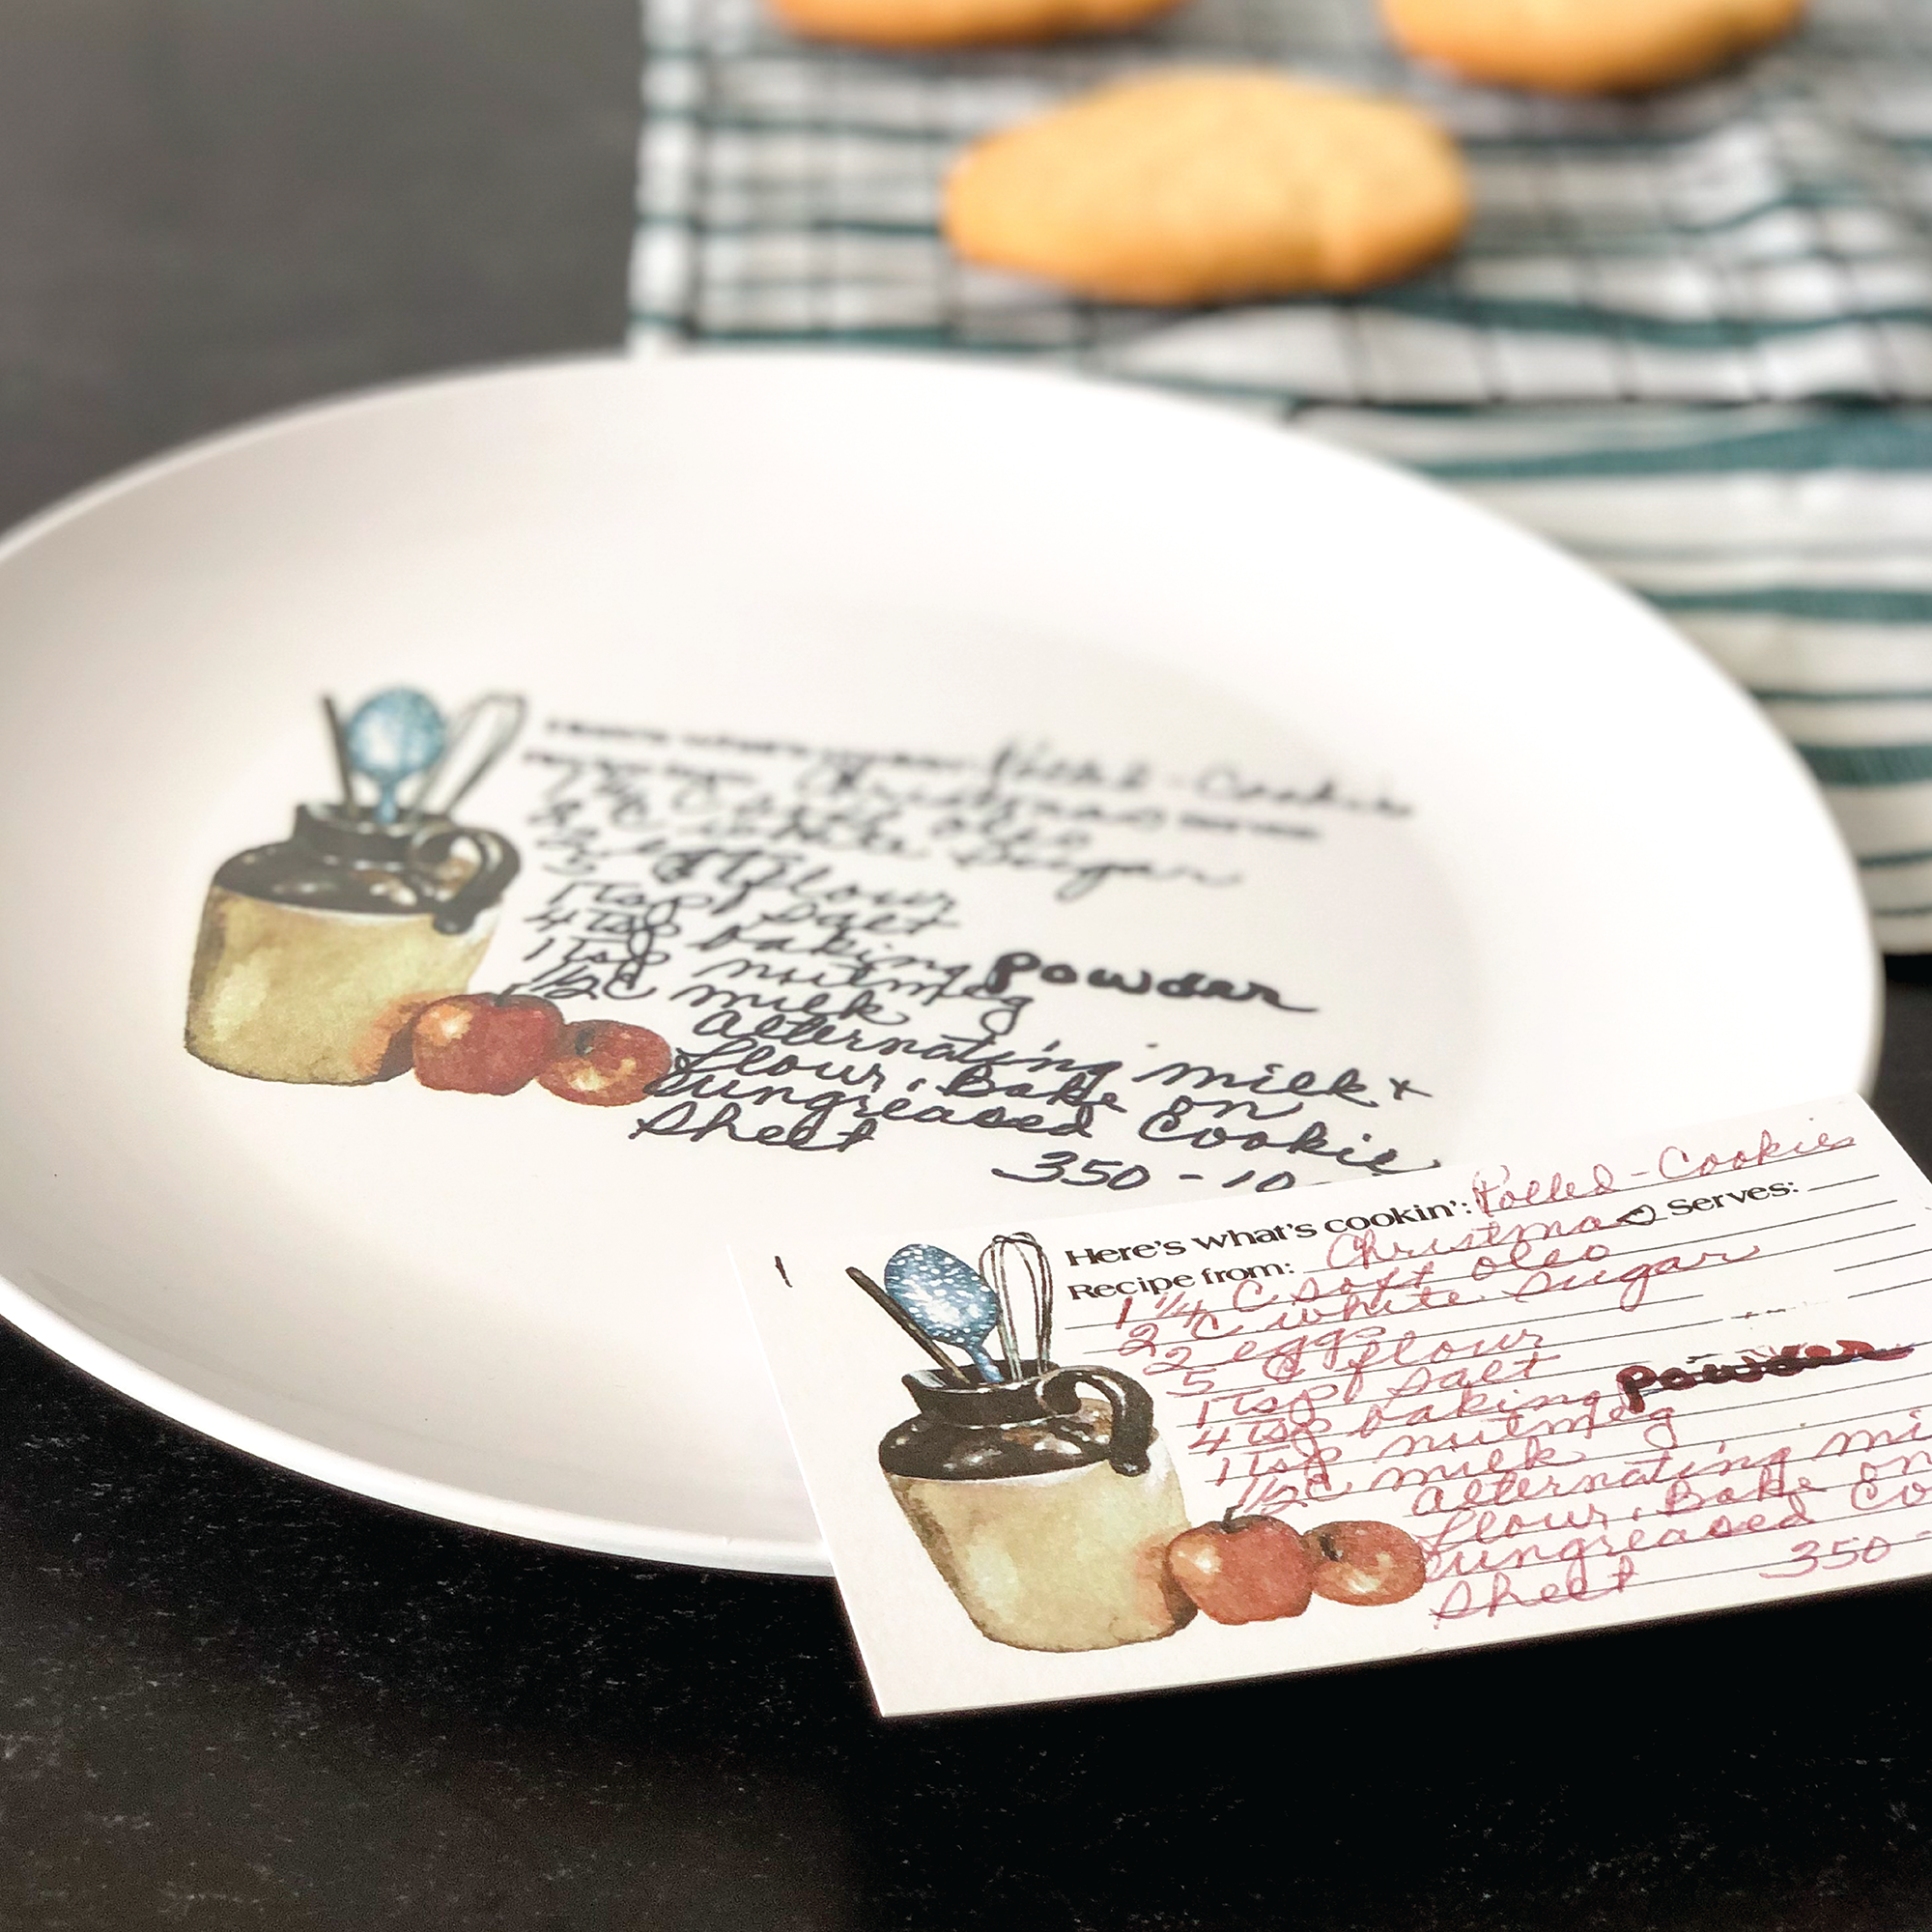 Here's what's cookin': Rolled-Cookies
Recipe from: Christmas Serves:
1 1/4 C soft oleo
2 C white Sugar
2 eggs
5 C flour
1 Tsp Salt
4 Tsp baking powder
1 Tsp nutmeg
1/2 C milk
Alternating milk +
flour. Bake on
ungreased Cookie
Sheet
350 - 10
Here's what's cookin': Rolled-Cookies
Recipe from: Christmas Serves:
1 1/4 C soft oleo
2 C white Sugar
2 eggs
5 C flour
1 Tsp Salt
4 Tsp baking powder
1 Tsp nutmeg
1/2 C milk
Alternating mi
flour. Bake on
ungreased Co
Sheet 350